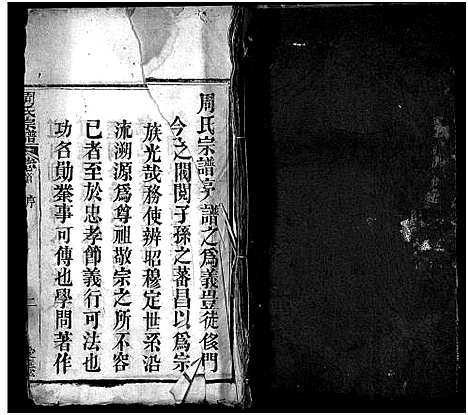 周氏宗譜 譜之為義豈徒侈門
今之閥閱子孫之蕃昌以為宗
族光哉務使辨昭穆定世系沿
流溯源為尊祖敬宗之所不容
已者至於忠孝節義行可法也
功名勛業事可傳也學問著作
周氏宗譜 卷首 序 一